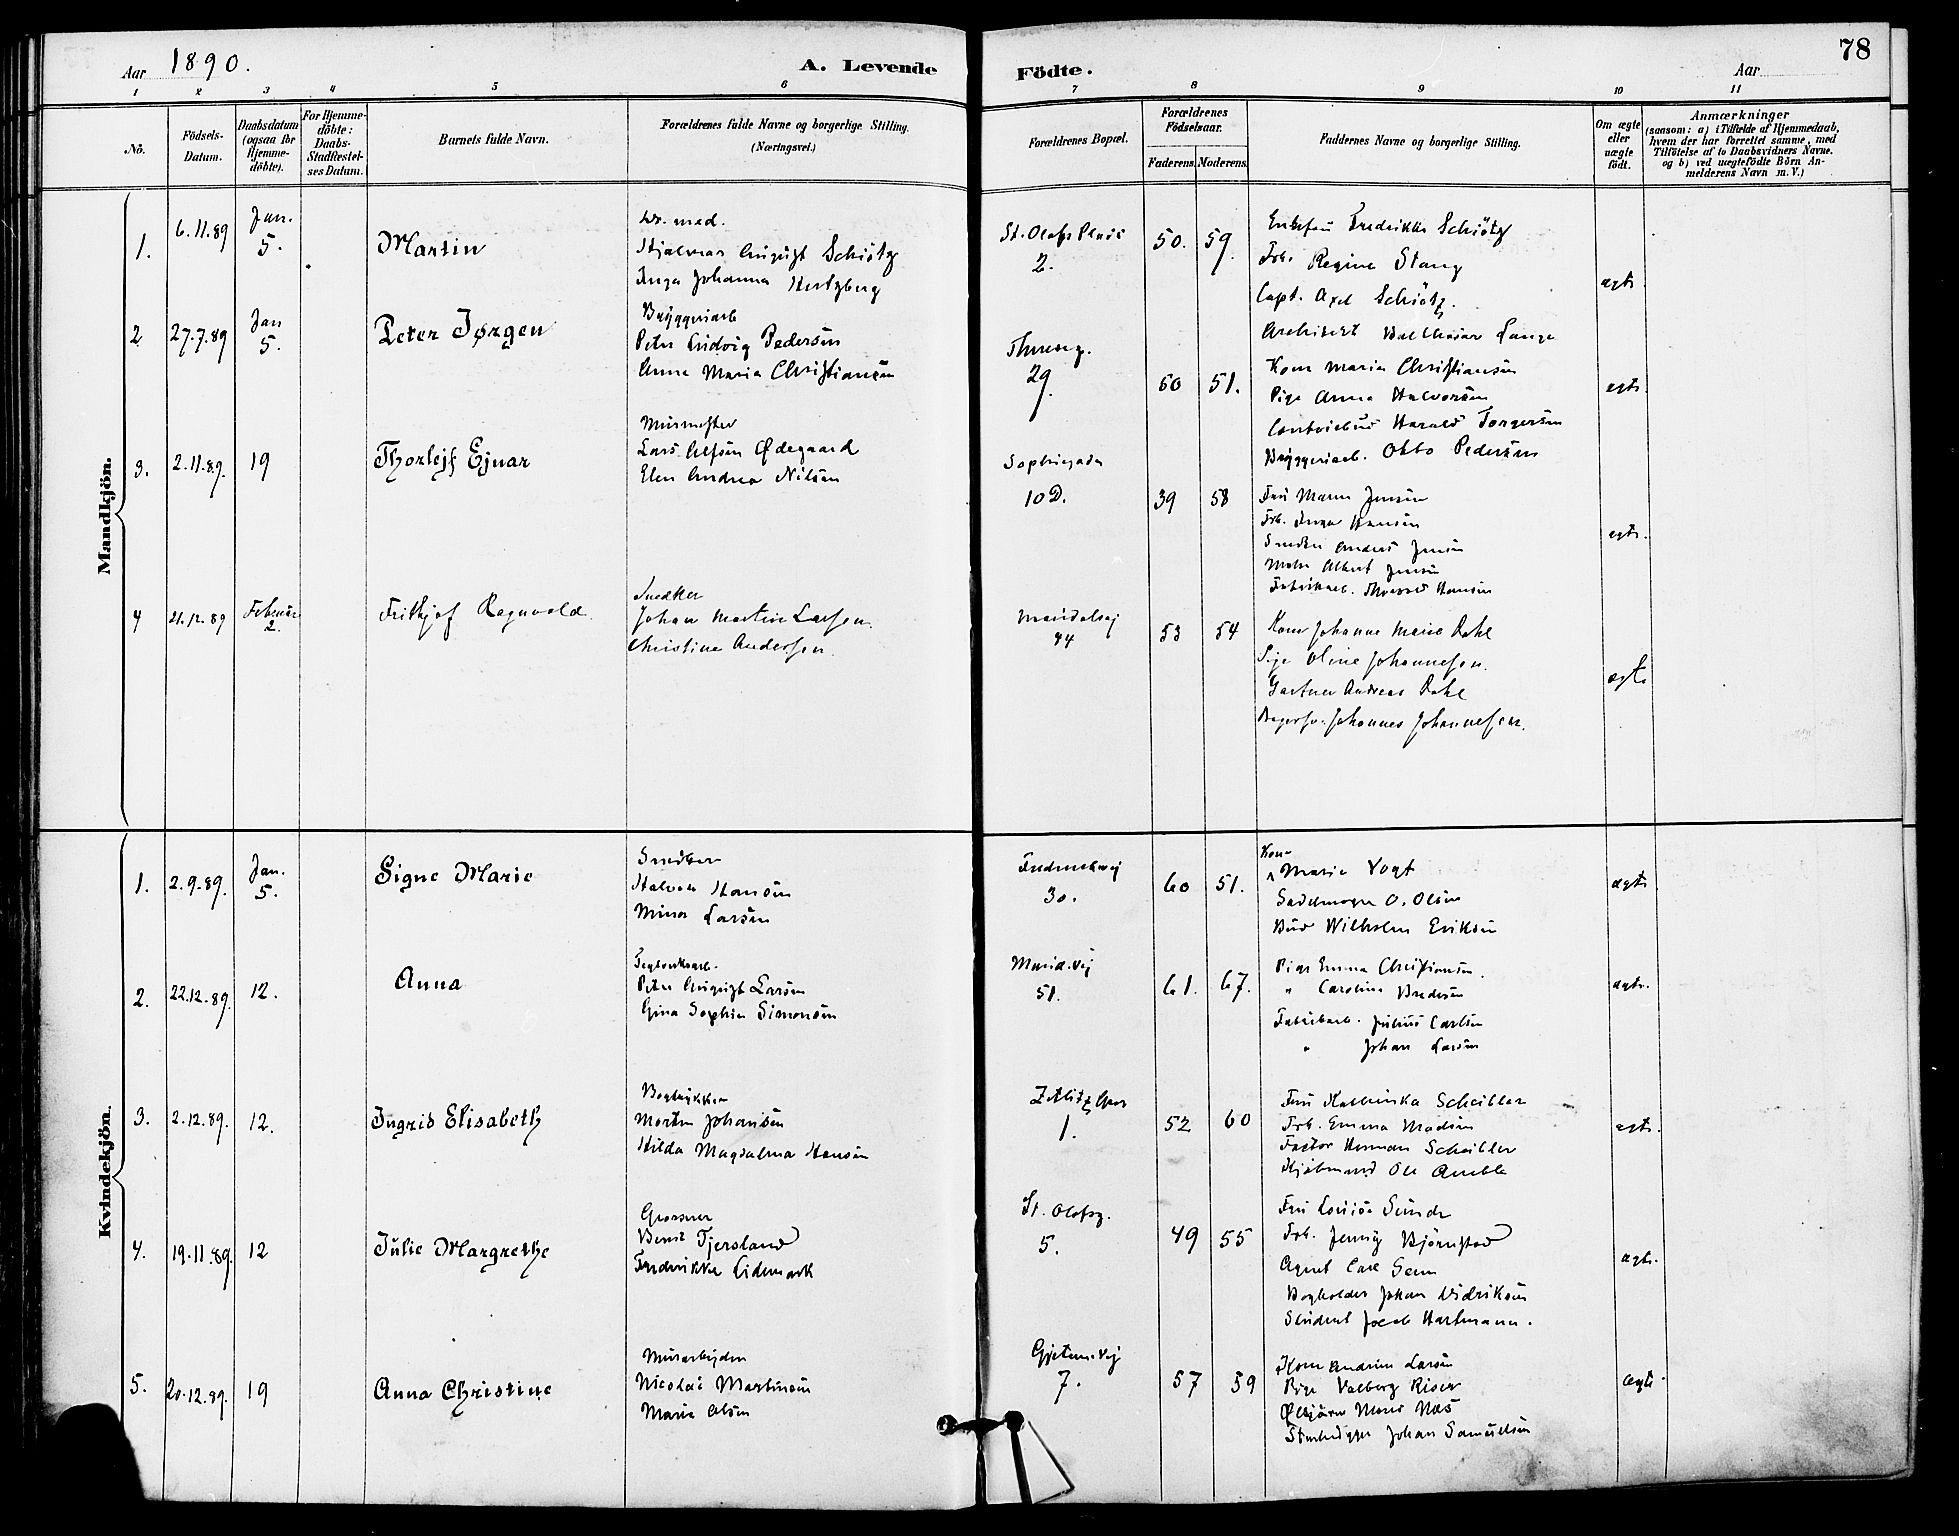 Aar 1890. A. Levende Födte. Aar 78
1 2 3 4 5 6 7 8 9 10 11
No.
Födsels-Datum.
Daabsdatum (ogsaa for Hjemme-döbte).
For Hjemme-döbte: Daabs-Stadfestel-ses Datum.
Barnets fulde Navn.
Forældrenes fulde Navne og borgerlige Stilling. (Næringsvei.)
Forældrenes Bopæl.
Forældrenes Födselsaar.
Faderens. Moderens.
Faddernes Navne og borgerlige Stilling.
Om ægte eller uægte födt.
Anmærkninger
(saasom: a) i Tilfælde af Hjemmedaab, hvem der har forrettet samme, med Tilföielse af to Daabsvidners Navne. og b) ved uægtefödte Börn An-melderens Navn m. V.)
Mandkjön.
1. 6.11.89 Jan. 5. Martin
Dr. med.
Hjalmar August Schiøtz
Inga Johanna Hertzberg
St. Olafs Plads 2. 50. 59.
Enkefru Fredrikke Schiøtz
Frk. Regine Stang
Capt. Axel Schiøtz.
Architekt Balthazar Lange
ægte
2 27.7.89 Jan 5. Peter Jørgen
Bryggeriarb
Peter Ludvig Pedersen
Anne Maria Christiansen
Thereseg. 29. 60 51.
Kone Maria Christiansen
Pige Anna Halvorsen
Contoirbud Harald Torgersen
Bryggeriarb. Otto Pedersen
ægte.
3. 2.11.89. 19 Thorleif Ejnar
Murmester
Lars Olsen Ødegaard
Elen Andrea Nilsen
Sophiegade 10 D. 39 58
Fru Maren Jensen
Frk. Inga Hansen
Snedker Anders Jensen
Maler Albert Jensen
Fabrikarb. Thorvald Hansen
ægte.
4 21.12.89 Februar 2. Frithjof Ragnvald
Snedker
Johan Martin Larsen.
Christine Andersen.
Maridalsvej 44 53 54
Kone Johanne Marie Dahl
Pige Oline Johannesen.
Gartner Andreas Dahl
Bagersv. Johannes Johannesen.
ægte
Kvindekjön.
1. 2.9.89. Jan. 5. Signe Marie
Snedker
Halvor Hansen
Mina Larsen
30. 60 51.
Kone Marie Vogt
Sadelmager O. Olsen
Bud Wilhelm Eriksen
ægte
2. 22.12.89. 12. Anna
Peter August Larsen
Gina Sophie Simonsen
Marid.vej 51. 61. 67.
Pige Emma Christiansen.
" Caroline Bredesen
Fabrikarb. Julius Carlsen
" Johan Larsen
ægte.
3. 2.12.89. 12. Ingrid Elisabeth
Bogtrykker
Morten Johansen
Hilda Magdalena Hansen
1. 52 60
Fru Kathinka Scheibler
Frk. Emma Madsen
Factor Herman Scheibler
Kjøbmand Ole Amble
ægte.
4. 19.11.89. 12 Julie Margrethe
Grosserer
Bernt Tjersland
Fredrikke Lidemark
St. Olafsg. 5. 49 55
Fru Lovise Sunde
Frk. Jenny Bjørnstad
Agent Carl Senn
Bogholder Johan Didriksen
Student Jacob Hartmann.
ægte.
5. 20.12.89. 19 Anna Christine
Murarbejder
Nicolai Martinsen
Maria Olsen
7. 57 59
Kone Andrine Larsen
Pige Valborg Riser
Johan Samuelsen
ægte